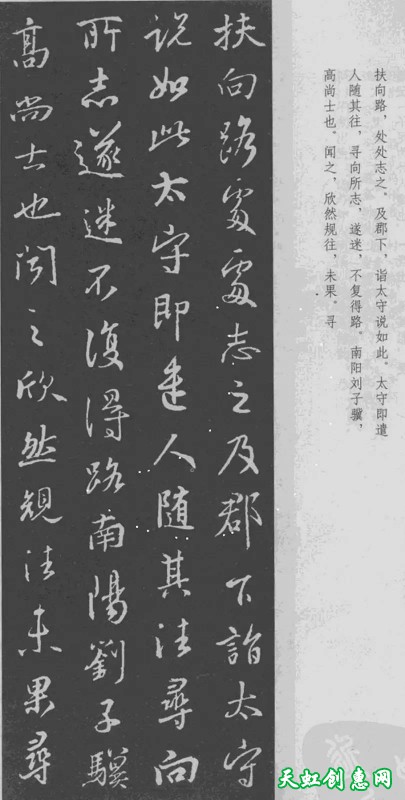 扶向路，处处志之。及郡下，诣太守说如此。太守即遣
人随其往，寻向所志，遂迷，不复得路。南阳刘子骥，
高尚士也。闻之，欣然规往，未果。寻
扶向路處處志之及郡下詣太守
説如此太守即遣人随其往尋向
所志遂迷不復得路南陽劉子驥
高尚士也聞之欣然規往未果尋
天虹创惠网